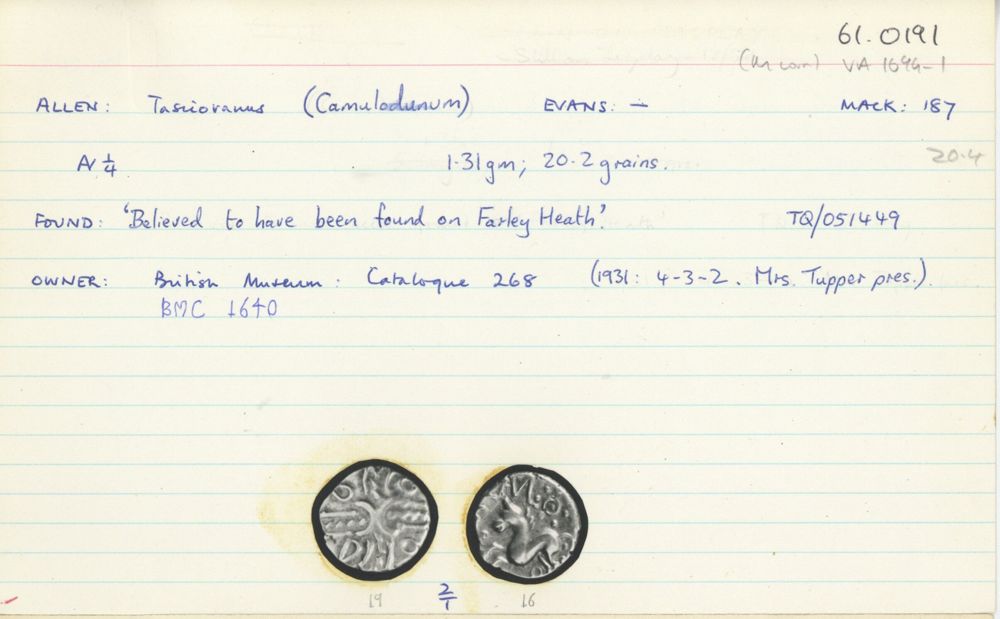 61.0191
(in coin) VA 1694-1
ALLEN: Tasciovanus (Camulodunum) EVANS: — MACK: 187
N ¼ 1.31gm; 20.2 grains. 20.4
FOUND: 'Believed to have been found on Farley Heath'. TQ/051449
OWNER: British Museum: Catalogue 268 (1931: 4-3-2. Mrs. Tupper pres.).
BMC 1640
19 2/1 16